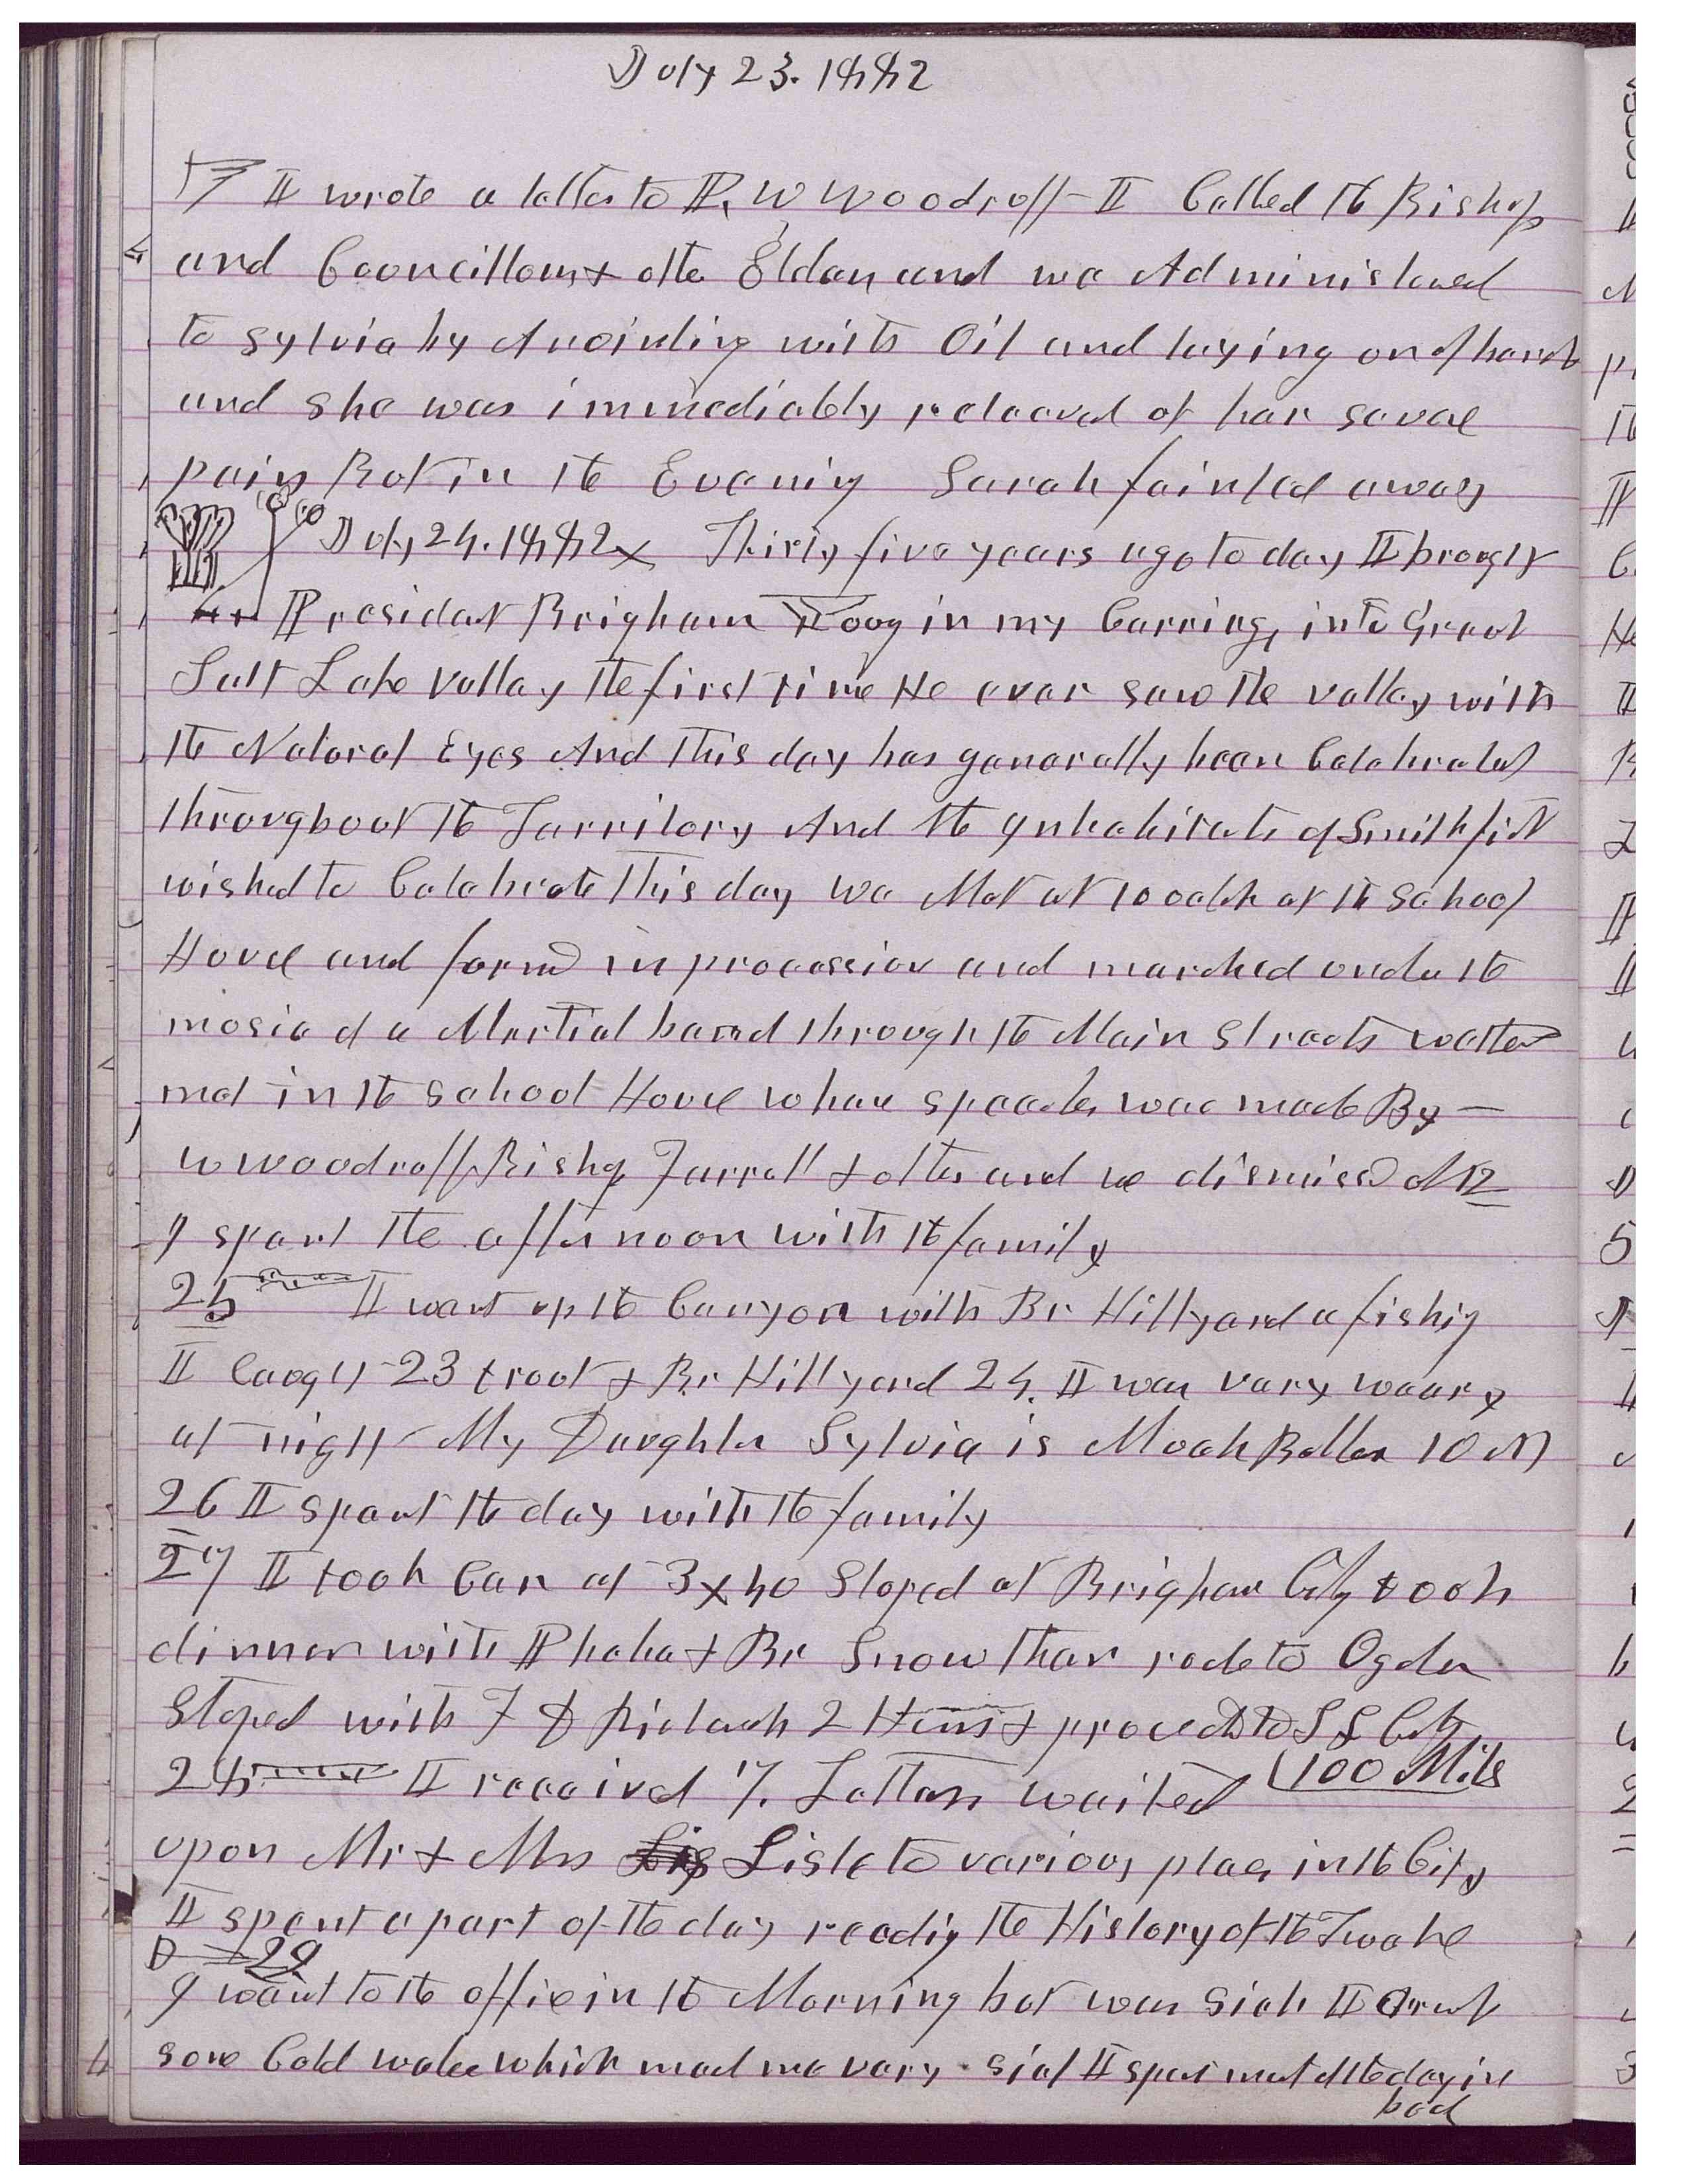 July 23. 1882
I wrote a letter to P, W Woodruff I Called the Bishop
and Councillors & other Elders and we Administered
to Sylvia by Anointing with Oil and laying on of hands
and she was immediately releaved of her sevae
pain But in the Evening Sarah fainted away
July 24. 1882 Thirty five years ago to day I brought
President Brigham Young in my Carriag, into Great
Salt Lake valley the first time He ever saw the valley with
the Natural Eyes And this day has generally been Celebrated
throughout the Territory And the ynhabitants of Smithfield
wished to Celebrate this day we Met at 10 oclok at the School
House and formd in procession and marched under the
music of a Martial band through the Main Streets
met in the School House whare speeches was made By —
W Woodruff Bishop Farrell & others and we dismissd At 12
I spent the afternoon with the family
25 I went up the Canyon with Br Hillyard a fishig
I Caught 23 trout & Br Hillyard 24. I was vary weary
at night My Daughter Sylvia is Much Better 10 M
26 I spent the day with the family
27 I took Cars at 3x40 Stoped at Brigham City took
dinner with Phebe & Br Snow then rode to Ogden
Stoped with F D Richards 2 Hours & proceded to S L City
100 Miles
28 I received 7. Letters waited
upon Mr & Mrs Lisle to various places in the City
I spent a part of the day readig the History of the Twelve
29
I went to the office in the Morning but was Sick I drank
some Cold water which mad me vary sick I spent most of the day in
bed